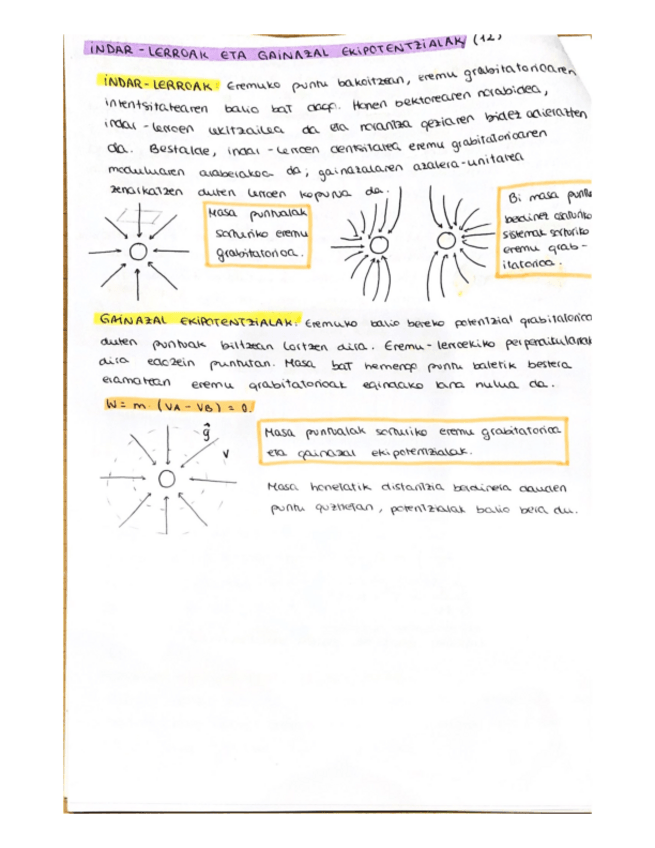 INDAR-LERROAK ETA GAINAZAL EKIPOTENTZIALAK (12)
INDAR-LERROAK: Eremuko puntu bakoitzean, eremu grabitatorioaren
intentsitatearen balio bat dago. Honen bektorearen norabidea,
indar-lerroen ukitzailea da eta norantza geziaren bidez adierazten
da. Bestalde, indar-lerroen dentsitatea eremu grabitatorioaren
moduluaren araberakoa da, gainazalaren azalera-unitatea
zeharkatzen duten lerroen kopurua da.
Masa puntualak
sorturiko eremu
grabitatorioa.
Bi masa puntu
berdinez osoturiko
sistemak sorturiko
eremu grab-
itatorioa.
GAINAZAL EKIPOTENTZIALAK: Eremuko balio bereko potentzial grabitatorioa
duten puntuak biltzean lortzen dira. Eremu-lerroekiko perpendikularrak
dira edozein puntutan. Masa bat hemengo puntu batetik bestera
eramatean eremu grabitatorioak egindako lana nulua da.
W = m · (VA - VB) = 0.
g⃗
V
Masa puntualak sorturiko eremu grabitatorioa
eta gainazal ekipotentzialak.
Masa honetatik distantzia berdinera dauden
puntu guztietan, potentzialak balio bera du.